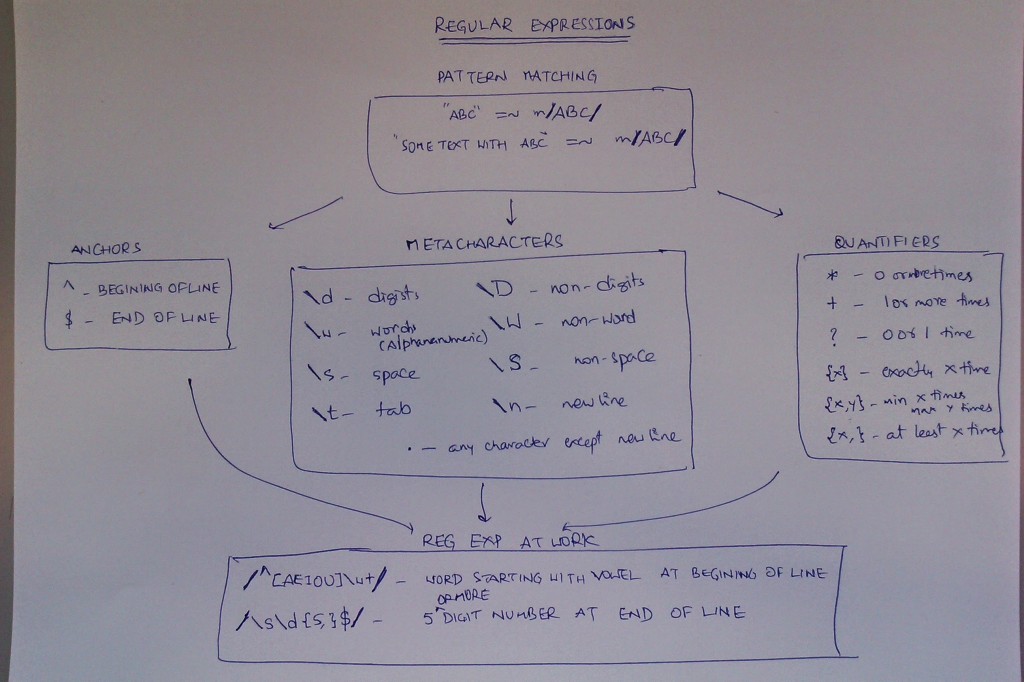 REGULAR EXPRESSIONS
PATTERN MATCHING
"ABC" =~ m/ABC/
"SOME TEXT WITH ABC" =~ m/ABC/
ANCHORS
^ - BEGINING OF LINE
$ - END OF LINE
METACHARACTERS
\d - digists \D - non-digits
\w - words \W - non-word
(Alphananumeric)
\s - space \S - non-space
\t - tab \n - newline
. - any character except newline
QUANTIFIERS
* - 0 or more times
+ - 1 or more times
? - 0 or 1 time
{x} - exactly x time
{x,y} - min x times
max y times
{x,} - at least x times
REG EXP AT WORK
/^[AEIOU]\w+/ - WORD STARTING WITH VOWEL AT BEGINING OF LINE
OR MORE
/\s\d{5,}$/ - 5 ^ DIGIT NUMBER AT END OF LINE